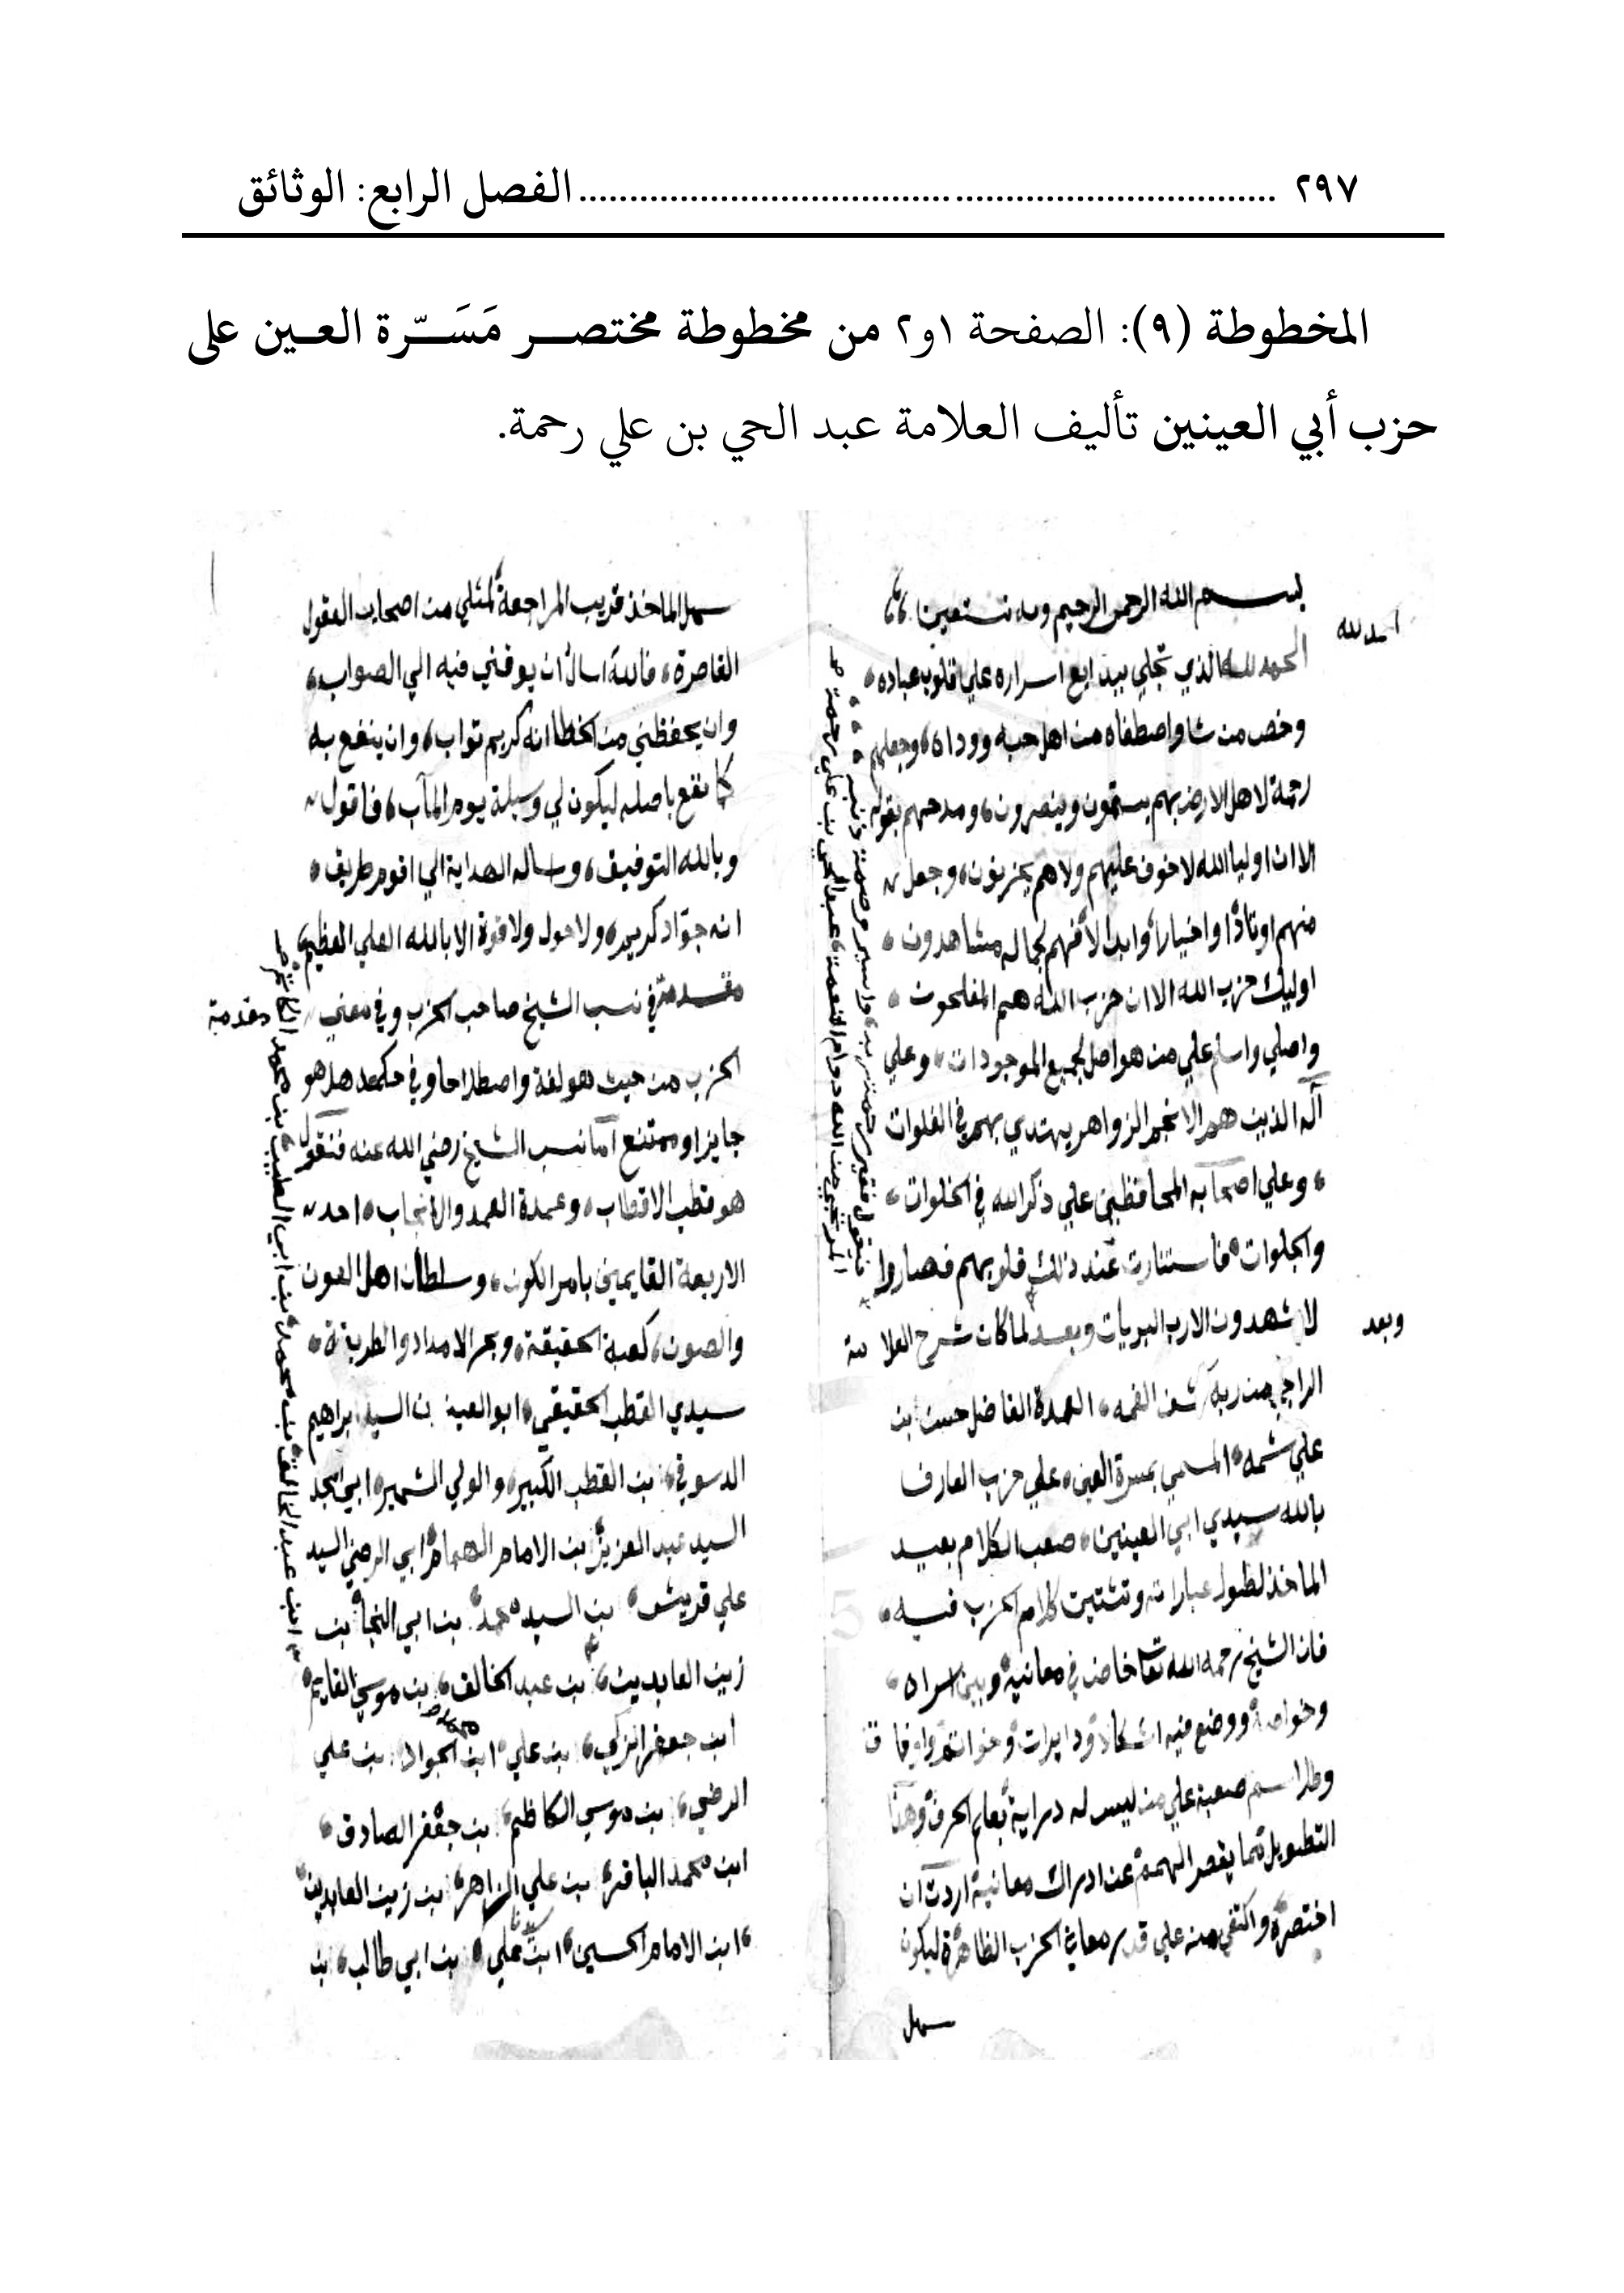 ٢٩٧ ..................................................................... الفصل الرابع: الوثائق
المخطوطة (٩): الصفحة ١و٢ من مخطوطة مختصر مَسَرّة العين على
حزب أبي العينين تأليف العلامة عبد الحي بن علي رحمة.
بسم الله الرحمن الرحيم وبه نستعين
الحمد لله
الحمد لله الذي تجلي ببدايع اسراره علي قلوب عباده
وخص من شا واصطفاه من اهل حبه ووداه وجعلهم
رحمة لاهل الارض بهم يستمون وينصرون ومدحهم بقوله
الا ان اوليا الله لا خوف عليهم ولا هم يحزنون وجعل
منهم اوتادا واخيارا وابدالا فهم لجماله مشاهدون
اوليك حزب الله الا ان حزب الله هم المفلحون
واصلي واسلم علي من هو اصل لجميع الموجودات وعلي
آله الذين هم الانجم الزواهر يهتدي بهم في الفلوات
وعلي اصحابه المحافظين علي ذكر الله في الخلوات
والجلوات فاستنارت عند ذلك قلوبهم فصاروا
لا يشهدون الا رب البريات وبعد لما كان شرح العلامة
وبعد
الراجي من ربه كشف الغمه العمدة الفاضل حسن ابن
علي شمه المسمي بمسرة العين علي حزب العارف
بالله سيدي ابي العينين صعب الكلام بعيد
الماخذ لطول عباراته وتشتيت كلام الحزب فيه
فان الشيخ رحمه الله تعا خاض في معانيه وبين اسراره
وخواصه ووضع فيه اشكالا ودايرات وخواتم واوفاق
وطلاسم صعبة علي من ليس له دراية بعلم الحرف وهذا
التطويل مما يقصر الهمم عن ادراك معانيه اردت ان
اختصره واكتفي منه علي قدر معاني الحزب الظاهرة ليكون
سهل
سهل الماخذ قريب المراجعة لمثلي من اصحاب العقول
القاصرة فالله اسال ان يوفني فيه الي الصواب
وان يحفظني من الخطا انه كريم تواب وان ينفع به
كما نفع باصله ليكون لي وسيلة يوم المآب فاقول
وبالله التوفيق وساله الهداية الي اقوم طريق
انه جواد كريم ولا حول ولا قوة الا بالله العلي العظيم
مقدمة في نسب الشيخ صاحب الحزب وفي معني
مقدمة
الحزب من حيث هو لغة واصطلاحا وفي حكمه هل هو
جايز او ممتنع اما نسب الشيخ رضي الله عنه فنقول
هو قطب الاقطاب وعمدة العمد والانجاب احد
الاربعة القايمين بامر الكون وسلطان اهل العون
والصون كعبة الحقيقة وبحر الامداد والطريقة
سيدي القطب الحقيقي ابو العينين السيد ابراهيم
الدسوقي بن القطب الكبير والولي الشهير ابي المجد
السيد عبد العزيز بن الامام الهمام ابي الرضي السيد
علي قريش بن السيد محمد بن ابي النجا بن
زين العابدين بن عبد الخالق بن موسي القايم
ابن جعفر الزكي بن علي ابن محمد الجواد بن علي
الرضي بن موسي الكاظم بن جعفر الصادق
ابن محمد الباقر بن علي الزاهر بن زين العابدين
ابن الامام الحسين ابن سيدنا علي بن ابي طالب بن